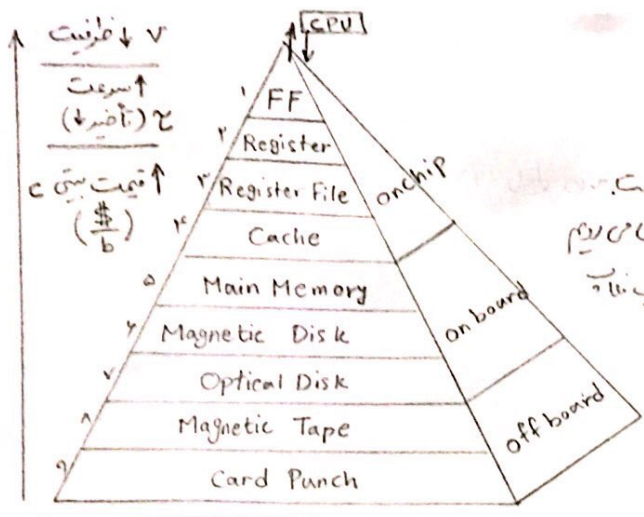 CPU
ظرفیت ↓ v
سرعت ↑
(تأخیر ↓) τ
قیمت بیتی ↑ c
($/b)
۱ FF
۲ Register
۳ Register File
۴ Cache
۵ Main Memory
۶ Magnetic Disk
۷ Optical Disk
۸ Magnetic Tape
۹ Card Punch
onchip
onboard
offboard